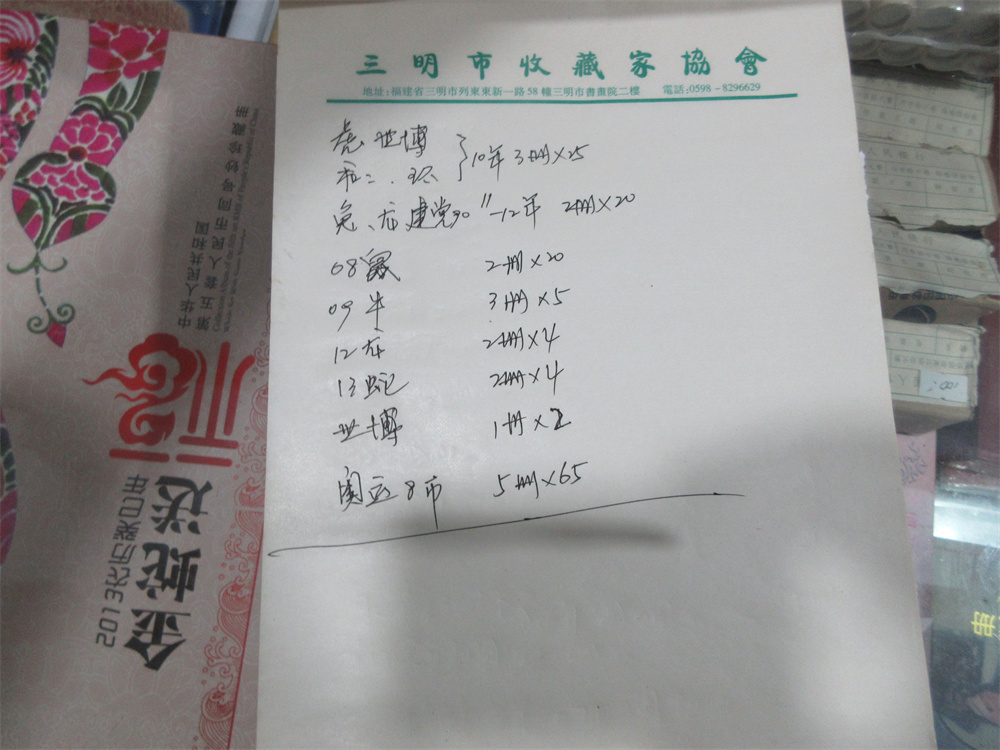 三明市收藏家協會
地址:福建省三明市列東東新一路58幢三明市書畫院二樓 電話:0598-8296629
虎 世博
和二、环 }10年 3册×25
兔、龙 建党90 11-12年 2册×20
08鼠 2册×20
09牛 3册×5
12龙 2册×4
13蛇 2册×4
世博 1册×2
奥运8币 5册×65
中华人民共和国
第五套人民币同号钞珍藏册
2013农历癸巳年
金蛇送
福
册